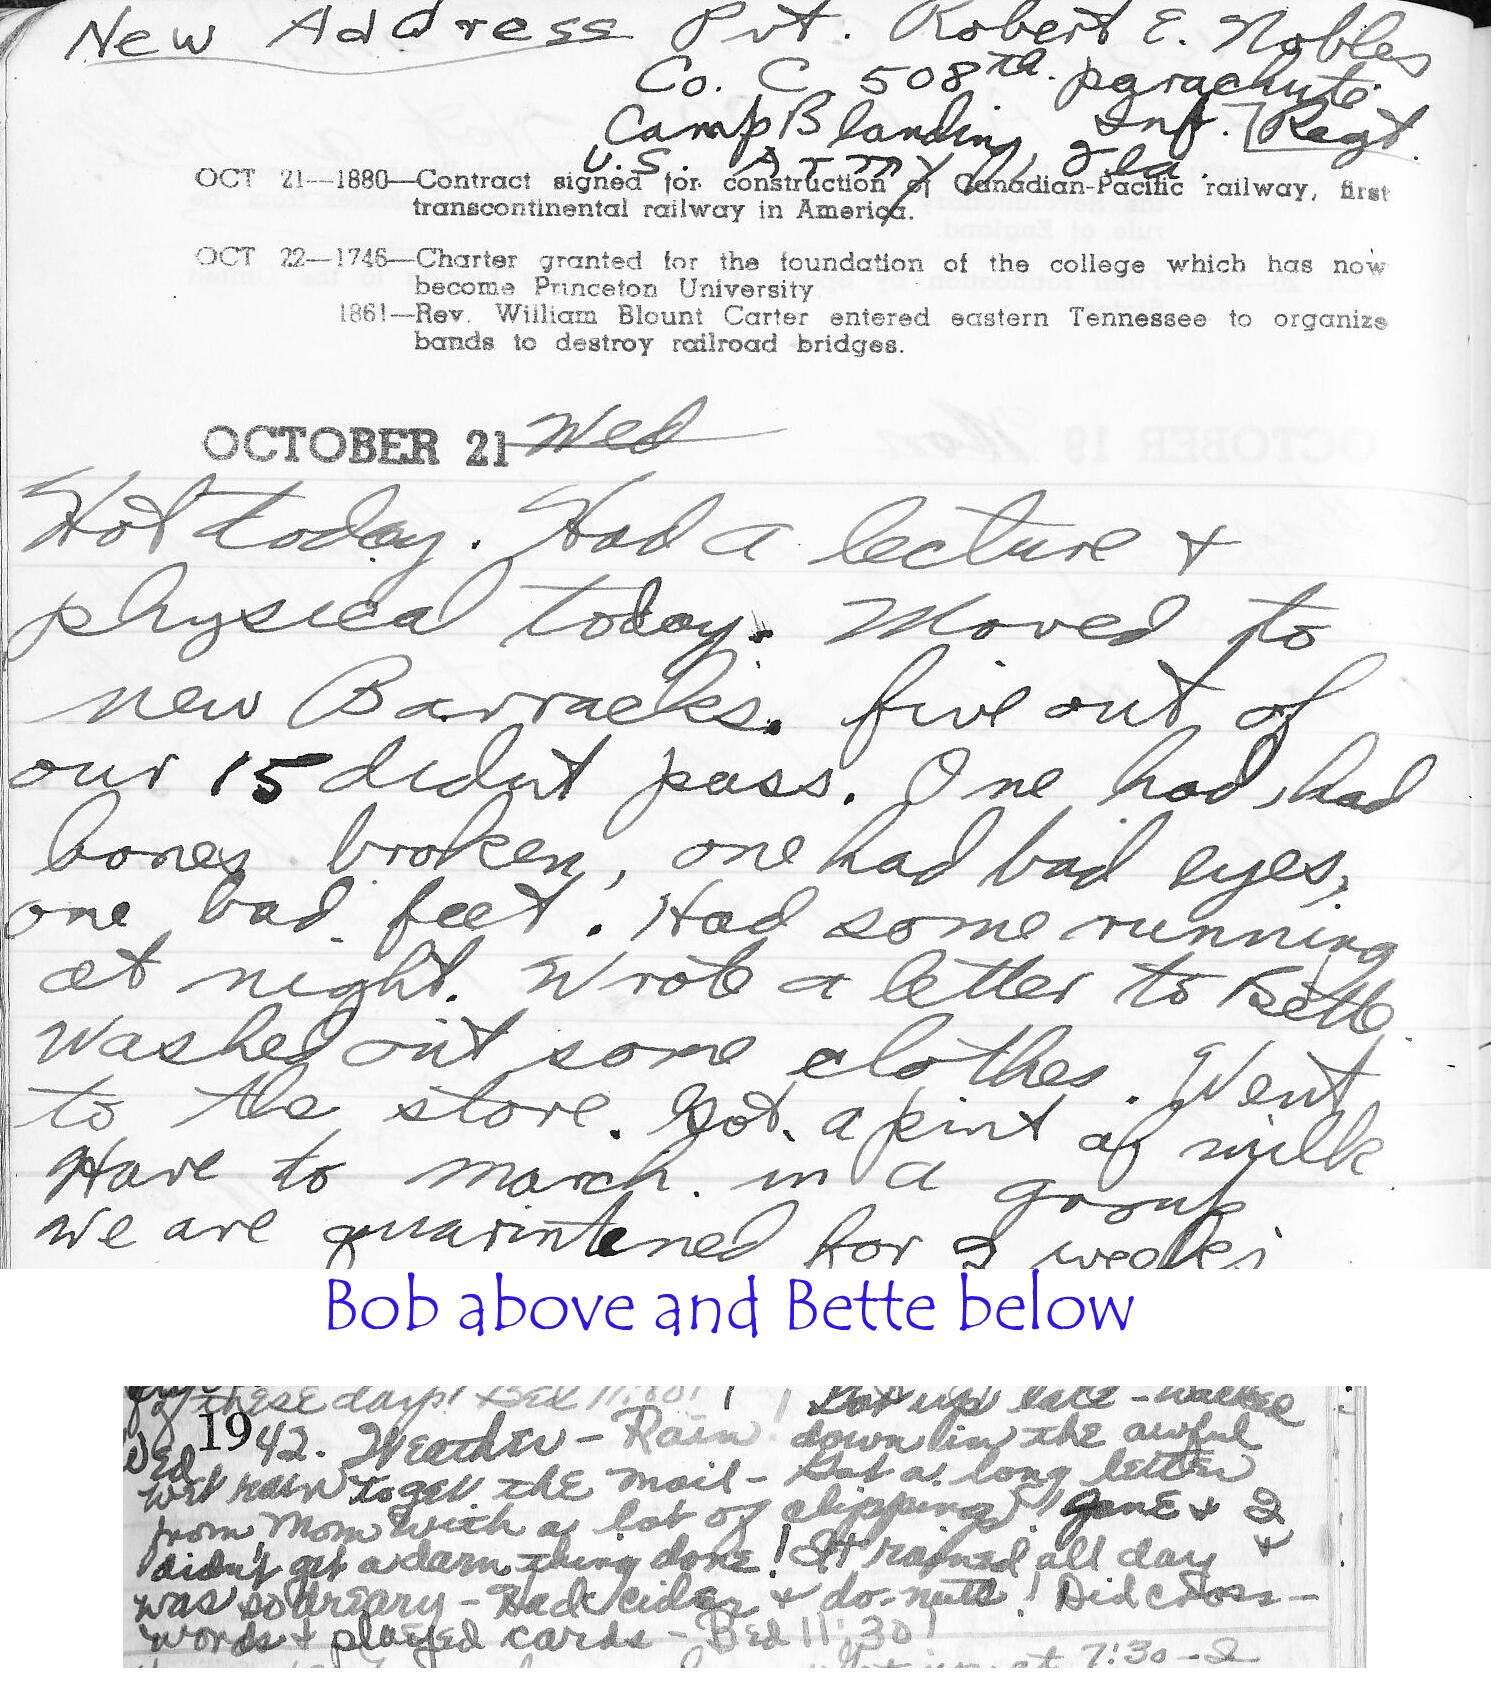 New Address Pvt. Robert E. Nobles
Co. C. 508th. parachute
Camp Blanding, Inf. Regt.
U.S. Army Fla.
OCT 21—1880—Contract signed for construction of Canadian-Pacific railway, first
transcontinental railway in America.
OCT 22—1746—Charter granted for the foundation of the college which has now
become Princeton University
1861—Rev. William Blount Carter entered eastern Tennessee to organize
bands to destroy railroad bridges.
OCTOBER 21 Wed
Hot today. Had a lecture +
physical today. Moved to
new Barracks. five out of
our 15 didnt pass. One had, had
bones broken, one had bad eyes,
one bad feet. Had some running
at night. Wrote a letter to Bette
Washed out some clothes. Went
to the store. Got a pint of milk
Have to march in a group
We are quarintened for 2 weeks
Bob above and Bette below
these days! Bed 11:30! Got up late - walked
Wed 1942. Weather - Rain down in the awful
wet rain to get the mail - Got a long letter
from Mom with a lot of clippings! Jane + I
didn't get a darn thing done! It rained all day +
was so dreary - Had cider + do-nuts! Did cross-
words + played cards - Bed 11:30!
up at 7:30 - I